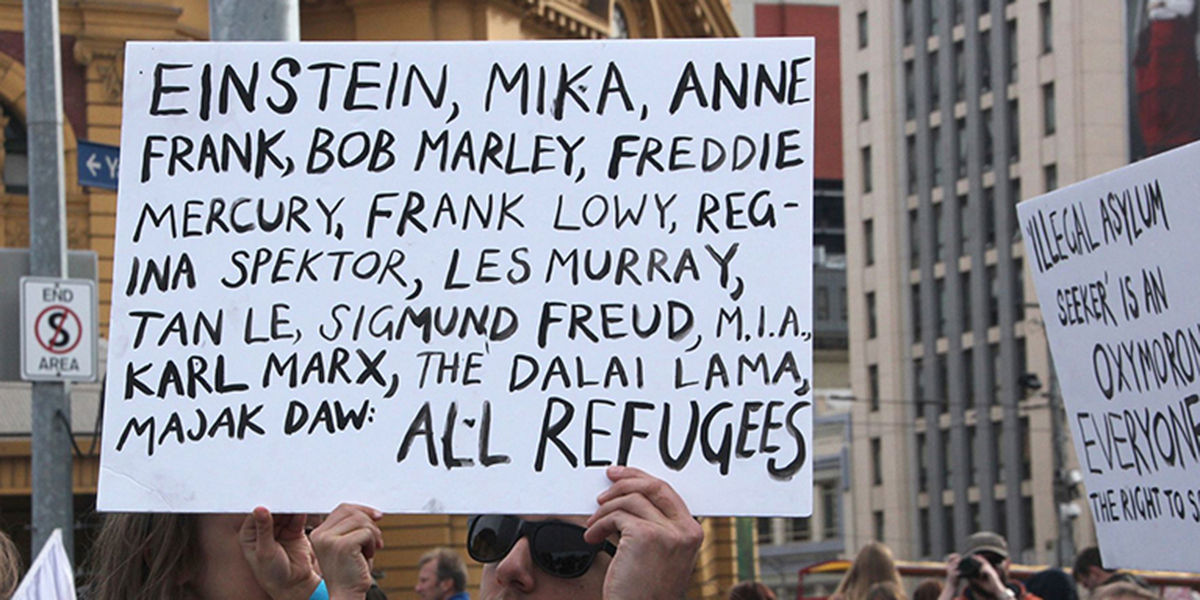 EINSTEIN, MIKA, ANNE
FRANK, BOB MARLEY, FREDDIE
MERCURY, FRANK LOWY, REG-
INA SPEKTOR, LES MURRAY,
TAN LE, SIGMUND FREUD, M.I.A.,
KARL MARX, THE DALAI LAMA,
MAJAK DAW: ALL REFUGEES
END
S
AREA
'ILLEGAL ASYLUM
SEEKER' IS AN
OXYMORON
EVERYONE
THE RIGHT TO